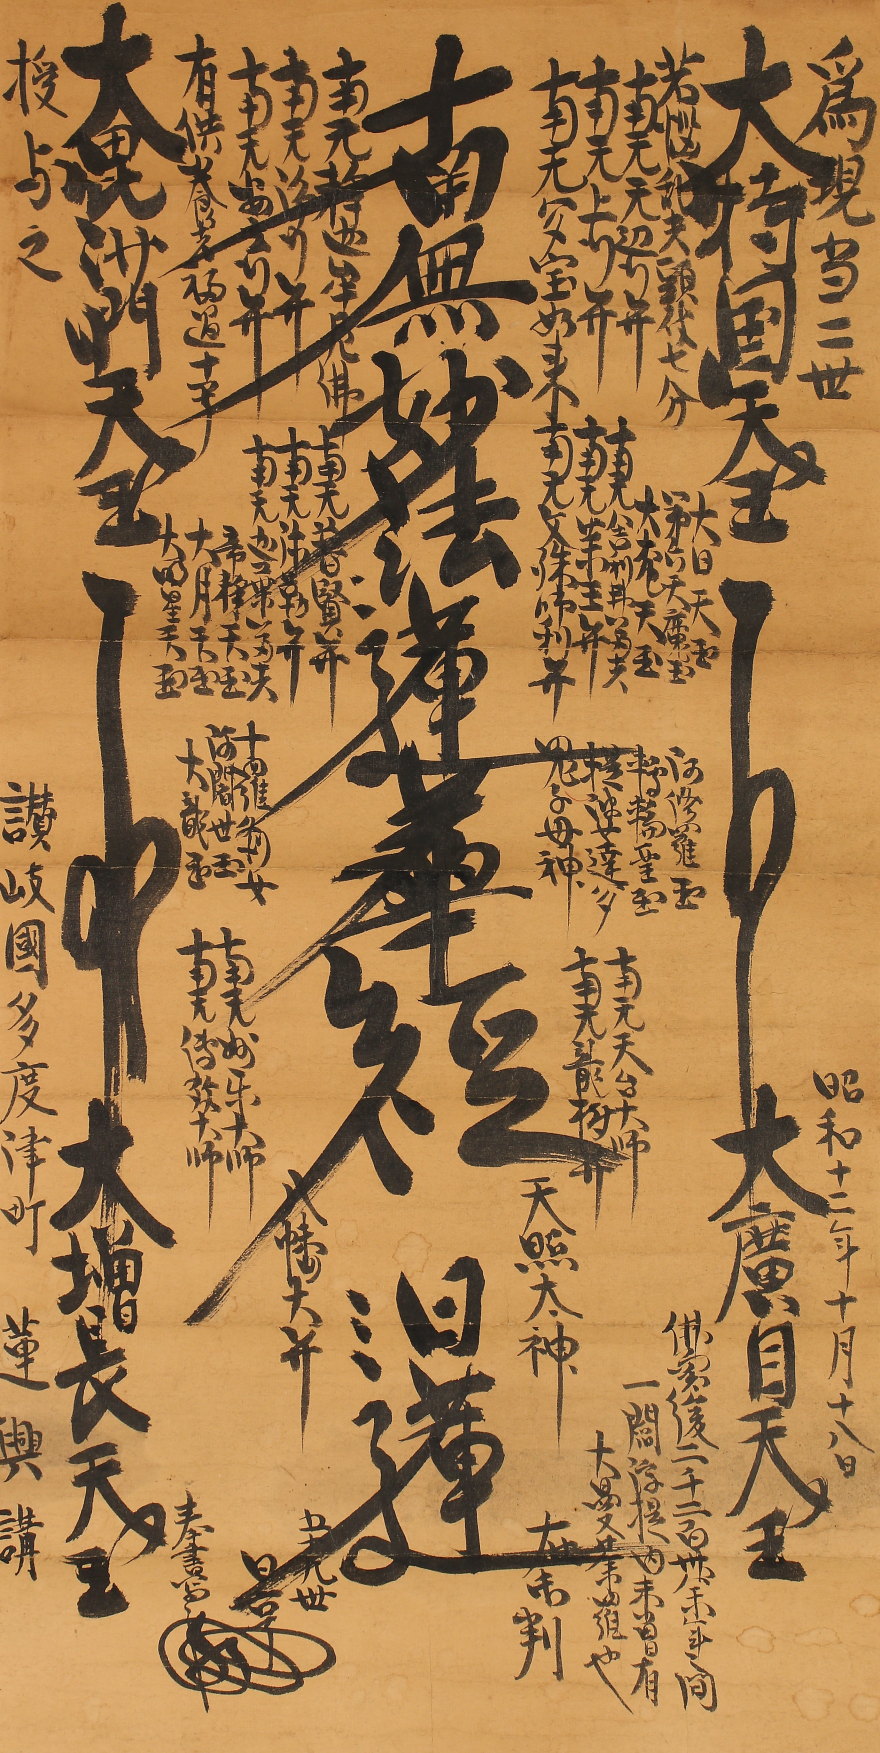 為現当二世
昭和十二年十月十八日
大持国天王
大廣目天王
若悩乱者頭破七分
南无无辺行菩薩
南无上行菩薩
南无多宝如来
南無妙法蓮華経
日蓮
南无釈迦牟尼佛
南无浄行菩薩
南无安立行菩薩
有供養者福過十号
大日天王
第六天魔王
大梵天王
南无舎利弗尊者
南无薬王菩薩
南无文殊師利菩薩
南无普賢菩薩
南无弥勒菩薩
南无迦葉尊者
帝釋天王
大月天王
大明星天王
阿修羅王
轉輪聖王
提婆達多
鬼子母神
十羅刹女
阿闍世王
大龍王
南无天台大師
南无龍樹菩薩
南无妙楽大師
南无傳教大師
天照太神
八幡大菩薩
佛滅後二千二百卅余年之間
一閻浮提之内未曾有
大曼荼羅也
在御判
五十九世
日亨
奉書写之
大毘沙門天王
大増長天王
授与之
讃岐國多度津町 蓮興講